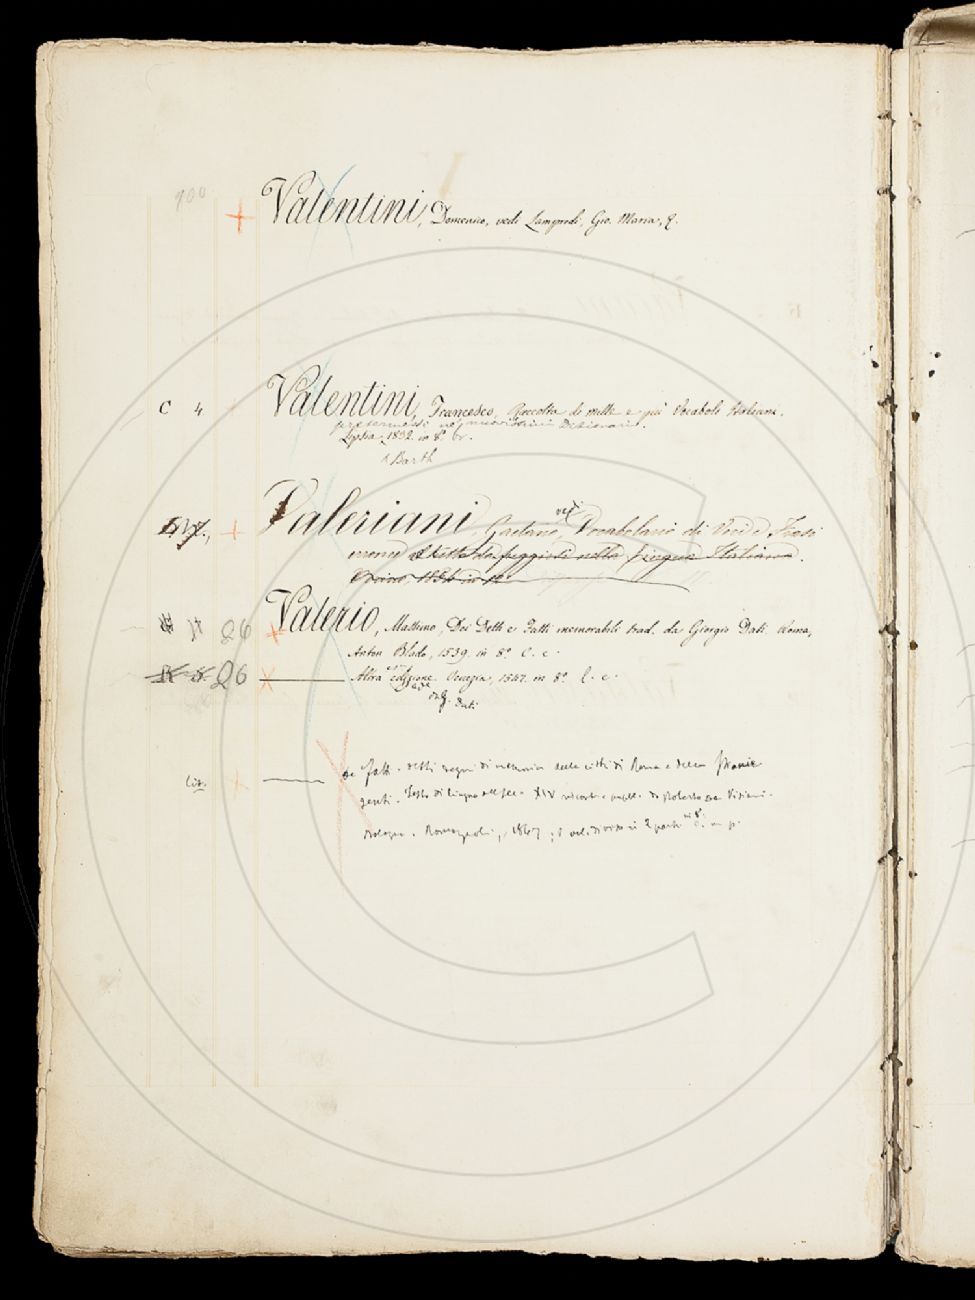 900
Valentini, Domenico, vedi Lampredi, Gio. Maria, &.
C 4 Valentini, Francesco, Raccolta di mille e più Vocaboli Italiani,
pretermessi ne' nuovissimi Dizionari.
Lipsia, 1832. in 8.º br.
Barth
Valeriani, Gaetano, Vocabolario di Voci e Frasi
vedi
erronee
in 12.
26 Valerio, Massimo, Dei Detti e Fatti memorabili trad. da Giorgio Dati. Roma,
Anton Blado, 1539. in 8.º l. c.
26 Altra edizione. Venezia, 1547. in 8.º l. c.
Dati
De' fatti e detti degni di memoria della città di Roma e delle stranie
genti. Testo di lingua del sec. XIV da Roberto de Visiani.
Bologna. Romagnoli, 1867, vol. diviso in 2 parti in 8.º